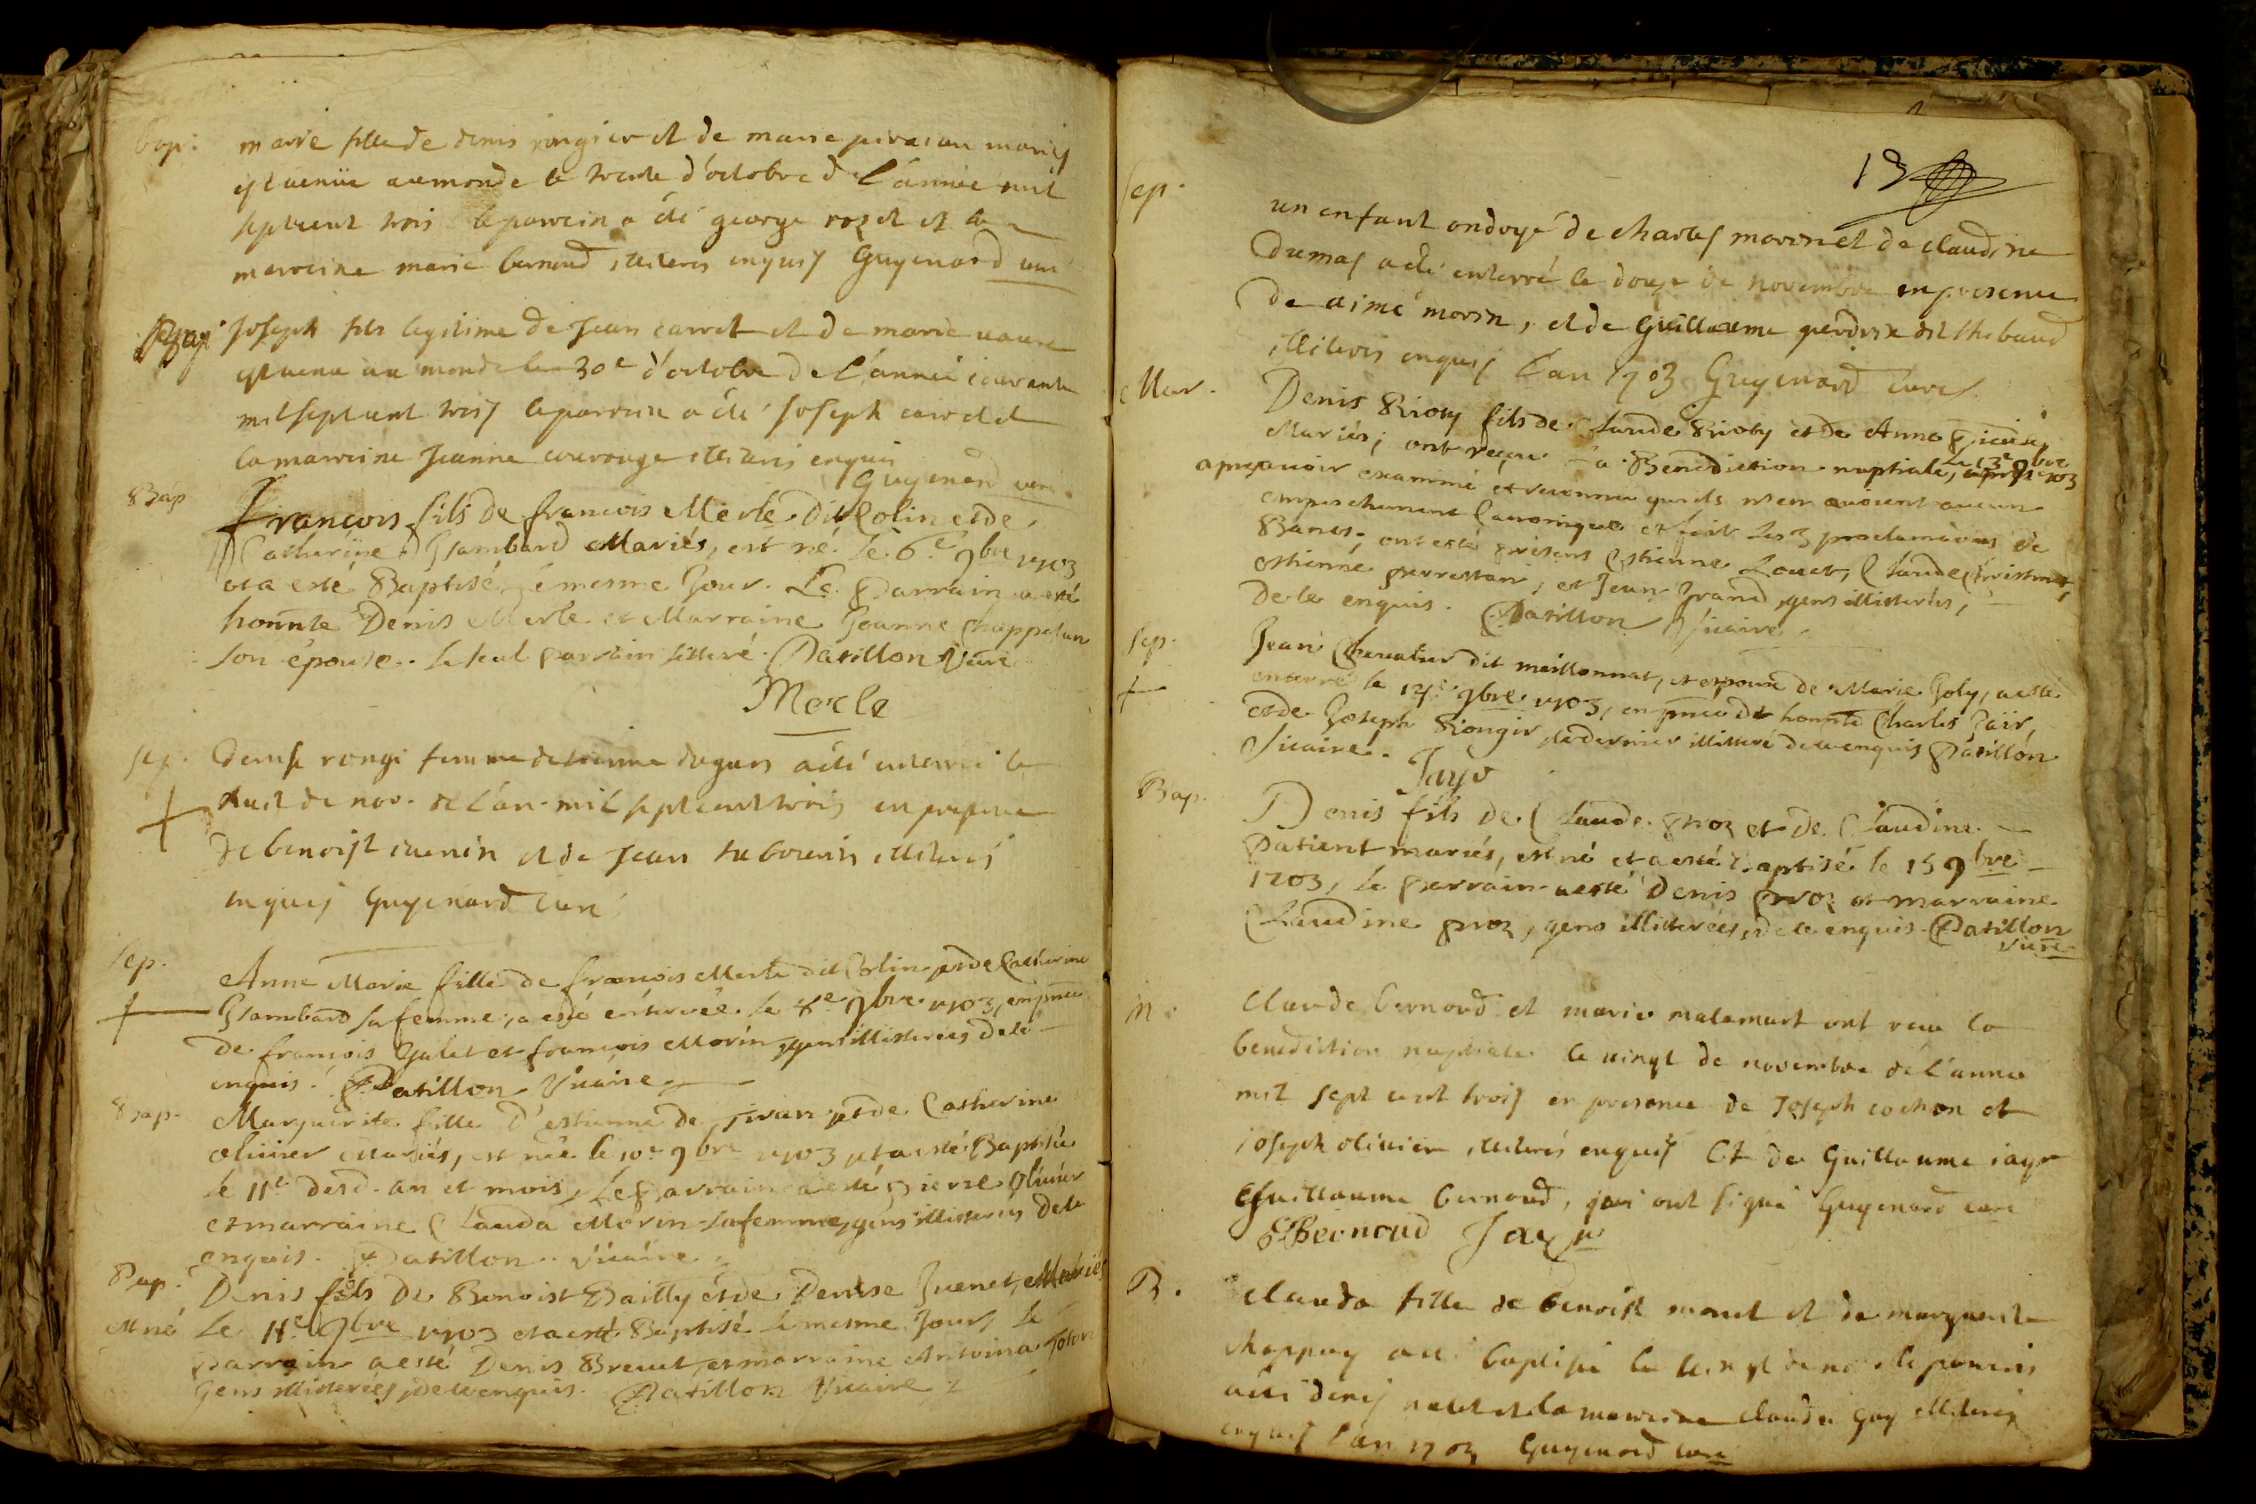 Bap: marie fille de denis rongier et de marie mariés
est venüe au monde le trente d'octobre de l'année mil
sept cent trois le parrein a été george rozet et la
marreine marie bernoud illiteres enquis Guyenard curé
Bap Joseph fils legitime de Jean carret et de marie
est venu au monde le 30e d'octobre de l'année courante
mil sept cent trois le parrein a été Joseph carret et
la marreine Jeanne illiteres enquis
Guyenard curé
Bap François fils de francois Merle dit Colin et de
Catherine Gsambard Mariés, est né le 6e 9bre 1703
et a esté Baptisé le mesme Jour. Le Parrain a esté
honnte Denis Merle et Marraine Jeanne Chappelan
son épouse. le seul parrain litteré. Patillon Vicre
Merle
Sep. denise rongi femme de dugas a été enterrée le
huit de nov. de l'an mil sept cent trois en presence
de benoist cuenin et de Jean illiteres
enquis Guyenard curé
Sep. Anne Marie fille de françois Merle dit Colin et de Catherine
Gsambard sa femme, a esté enterrée le 8e 9bre 1703, en pnce
de françois Galet et françois Morin gens illitterées de ce
enquis. Patillon Vicaire
Bap. Marguerite fille d'estienne de et de Catherine
olivier Mariés, est née le 10e 9bre 1703 et a esté Baptisée
le 11e desd. an et mois, Le Parrain a esté pierre Olivier
et marraine Clauda Morin sa femme, gens illitterées de ce
enquis. Patillon Vicaire
Bap. Denis fils de Benoist Bailly et de Denise Juenet, Mariés
est né Le 11e 9bre 1703 et a esté Baptisé le mesme Jour, Le
parrain a esté Denis Brevet, et marraine Antoina
Gens illitterées, de ce enquis. Patillon Vicaire
13
Sep. un enfant ondoyé de charles morin et de claudine
dumas a été enterré le douze de novembre en presence
de aimé morin, et de Guillaume perdrix dit thibaud
illiteres enquis l'an 1703 Guyenard curé
Mar. Denis Rioty fils de Claude Rioty et de Anne
Mariés; ont reçeu la Benediction nuptiale, le 13e 9bre 1703
apres avoir examiné et reconnu qu'ils n'en avoient aucun
empeschement Canonique et fait les 3 proclamations de
Bancs; ont esté présens Estienne Louet, Claude
estienne perrestan, et Jean grand, gens illitterés,
De ce enquis. Patillon Vicaire
Sep. Jean Chevalier dit maillonnat, et espoux de Marie Joly, a esté
enterré le 14e 9bre 1703, en pnce de honnte Charles Jaÿr,
et de Joseph Rongir, ce dernier illitteré de ce enquis Patillon
Vicaire. Jayr
Bap. Denis fils de Claude proz et de Claudine
Patient mariés, est né et a esté baptisé le 15 9bre
1703, le parrain a esté Denis proz et marraine
Claudine proz, gens illitterées, de ce enquis Patillon
Vicre
M. Claude bernoud et marie malamart ont receu la
benediction nuptiale le vingt de novembre de l'année
mil sept cent trois en presence de Joseph cochon et
joseph olivier illiteres enquis Et de Guillaume iayr
Guillaume bernoud, qui ont signé Guyenard curé
GBernoud Jayr
B. clauda fille de benoist monet et de marguerite
chappuy a été baptisée le vingt de no. le parrein
a été denis et la marreine claudia gay illiteres
enquis l'an 1703 Guyenard curé